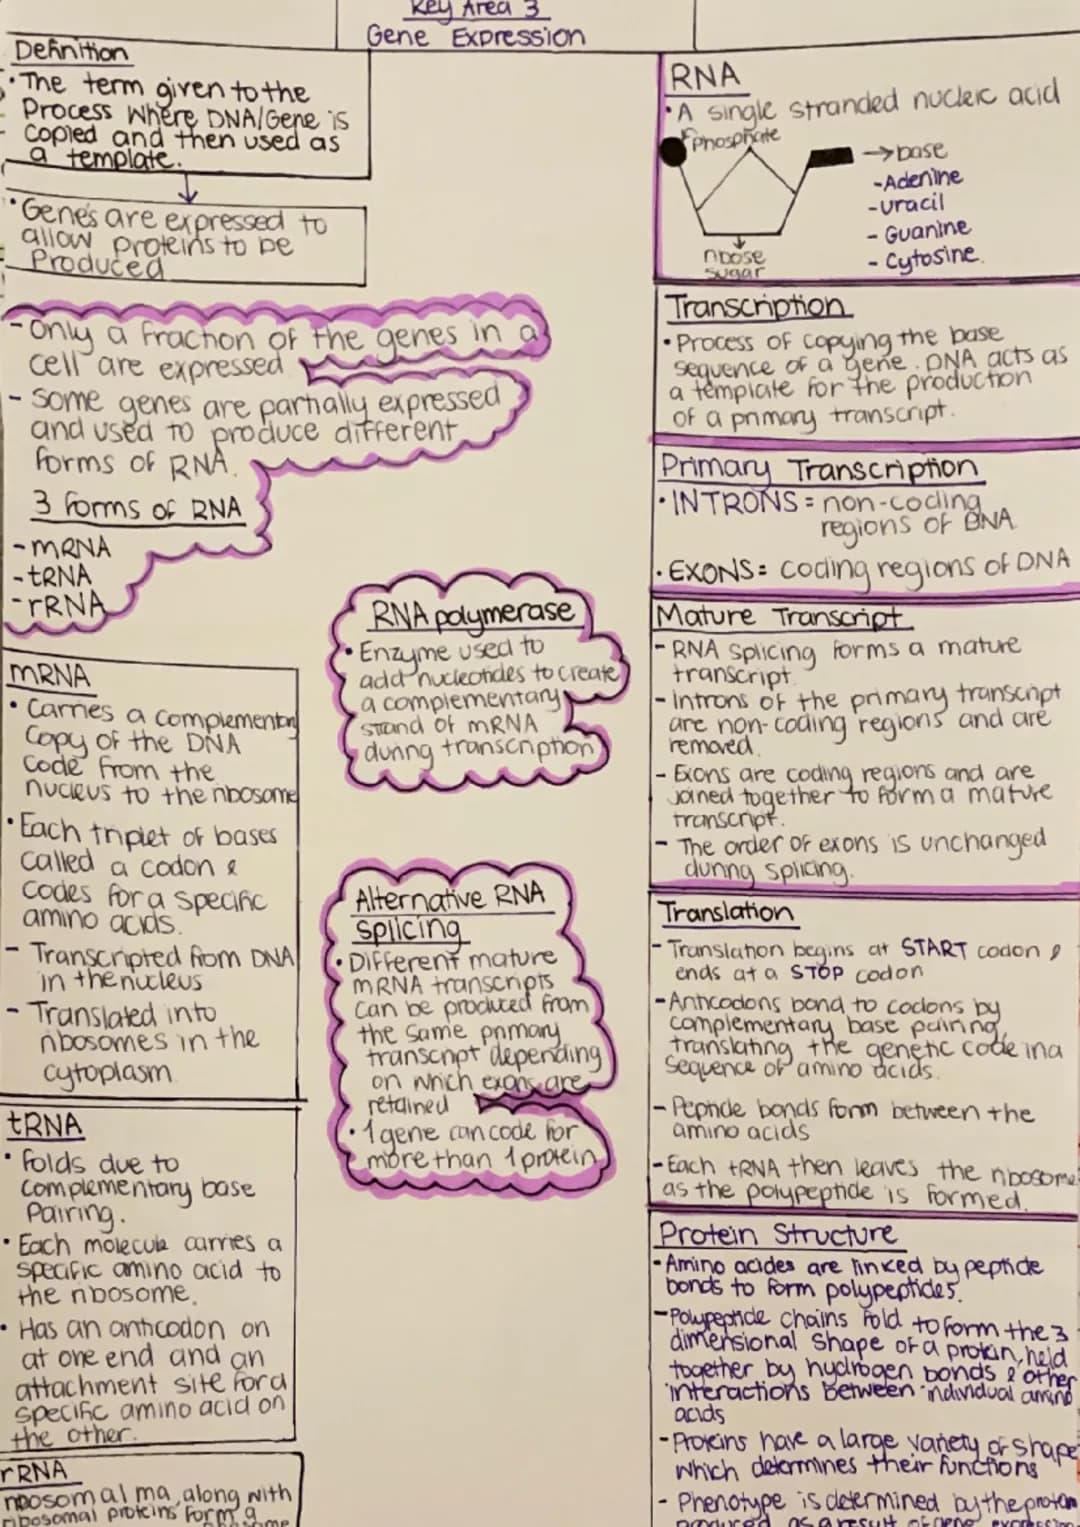 Key Area 3
Gene Expression
Definition
• The term given to the
Process Where DNA/Gene is
copied and then used as
a template.
• Genes are expressed to
allow proteins to be
Produced
- only a fraction of the genes in a
cell are expressed
- some genes are partially expressed
and used to produce different
forms of RNA.
3 forms of RNA
- mRNA
- tRNA
- rRNA
mRNA
• Carries a complementary
Copy of the DNA
code from the
nucleus to the ribosome
• Each triplet of bases
called a codon &
codes for a specific
amino acids.
- Transcribed from DNA
in the nucleus
- Translated into
ribosomes in the
cytoplasm
tRNA
• folds due to
complementary base
Pairing.
• Each molecule carries a
specific amino acid to
the ribosome.
• Has an anticodon on
at one end and an
attachment site for a
specific amino acid on
the other.
rRNA
ribosomal rna, along with
ribosomal proteins form a
RNA polymerase
• Enzyme used to
add nucleotides to create
a complementary
strand of mRNA
during transcription
Alternative RNA
splicing
• Different mature
mRNA transcripts
can be produced from
the same primary
transcript depending
on which exons are
retained
• 1 gene can code for
more than 1 protein
RNA
• A single stranded nucleic acid
Phosphate
→ base
- Adenine
- uracil
- Guanine
- Cytosine.
ribose
sugar
Transcription
• Process of copying the base
sequence of a gene. DNA acts as
a template for the production
of a primary transcript.
Primary Transcription
• INTRONS = non-coding
regions of DNA
• EXONS = coding regions of DNA
Mature Transcript
- RNA splicing forms a mature
transcript
- Introns of the primary transcript
are non-coding regions and are
removed.
- Exons are coding regions and are
joined together to form a mature
transcript.
- The order of exons is unchanged
during splicing.
Translation
- Translation begins at START codon &
ends at a STOP codon
- Anticodons bond to codons by
complementary base pairing,
translating the genetic code in a
sequence of amino acids.
- Peptide bonds form between the
amino acids
- Each tRNA then leaves the ribosome
as the polypeptide is formed.
Protein Structure
- Amino acides are linked by peptide
bonds to form polypeptides.
- Polypeptide chains fold to form the 3
dimensional shape of a protein, held
together by hydrogen bonds & other
interactions between individual amino
acids
- Proteins have a large variety of shape
which determines their functions
- Phenotype is determined by the protein
produced as a result of gene expression